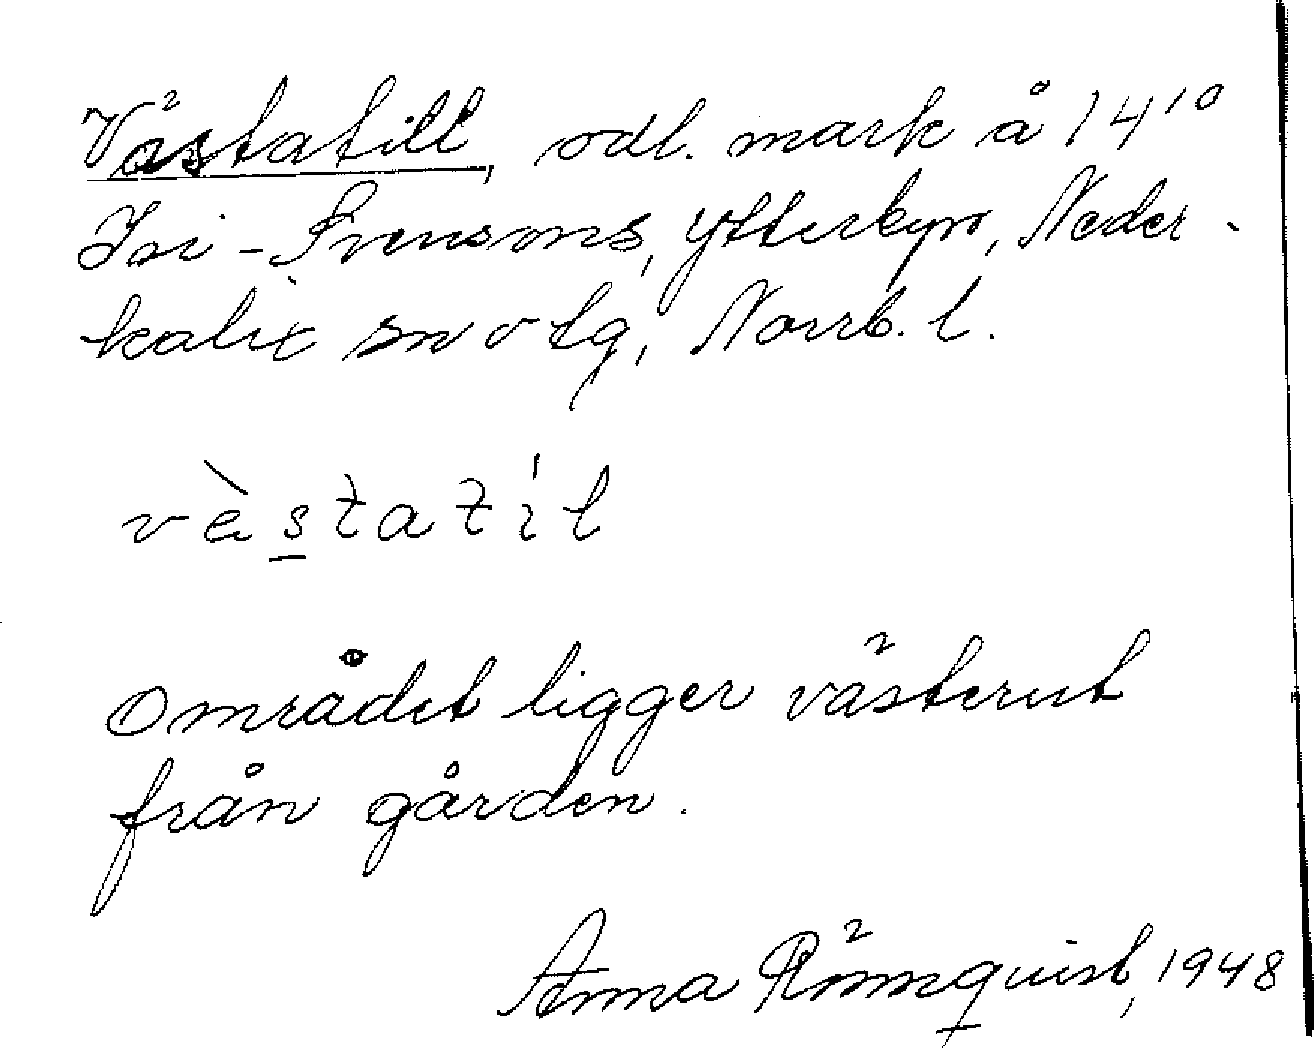 Västatill, odl. mark å 14¹⁰
Isi-Svensons, Ytterbyn, Neder-
kalix sn o tg, Norrb. l.
vèstatíl
Området ligger västerut
från gården.
Anna Rönnquist, 1948